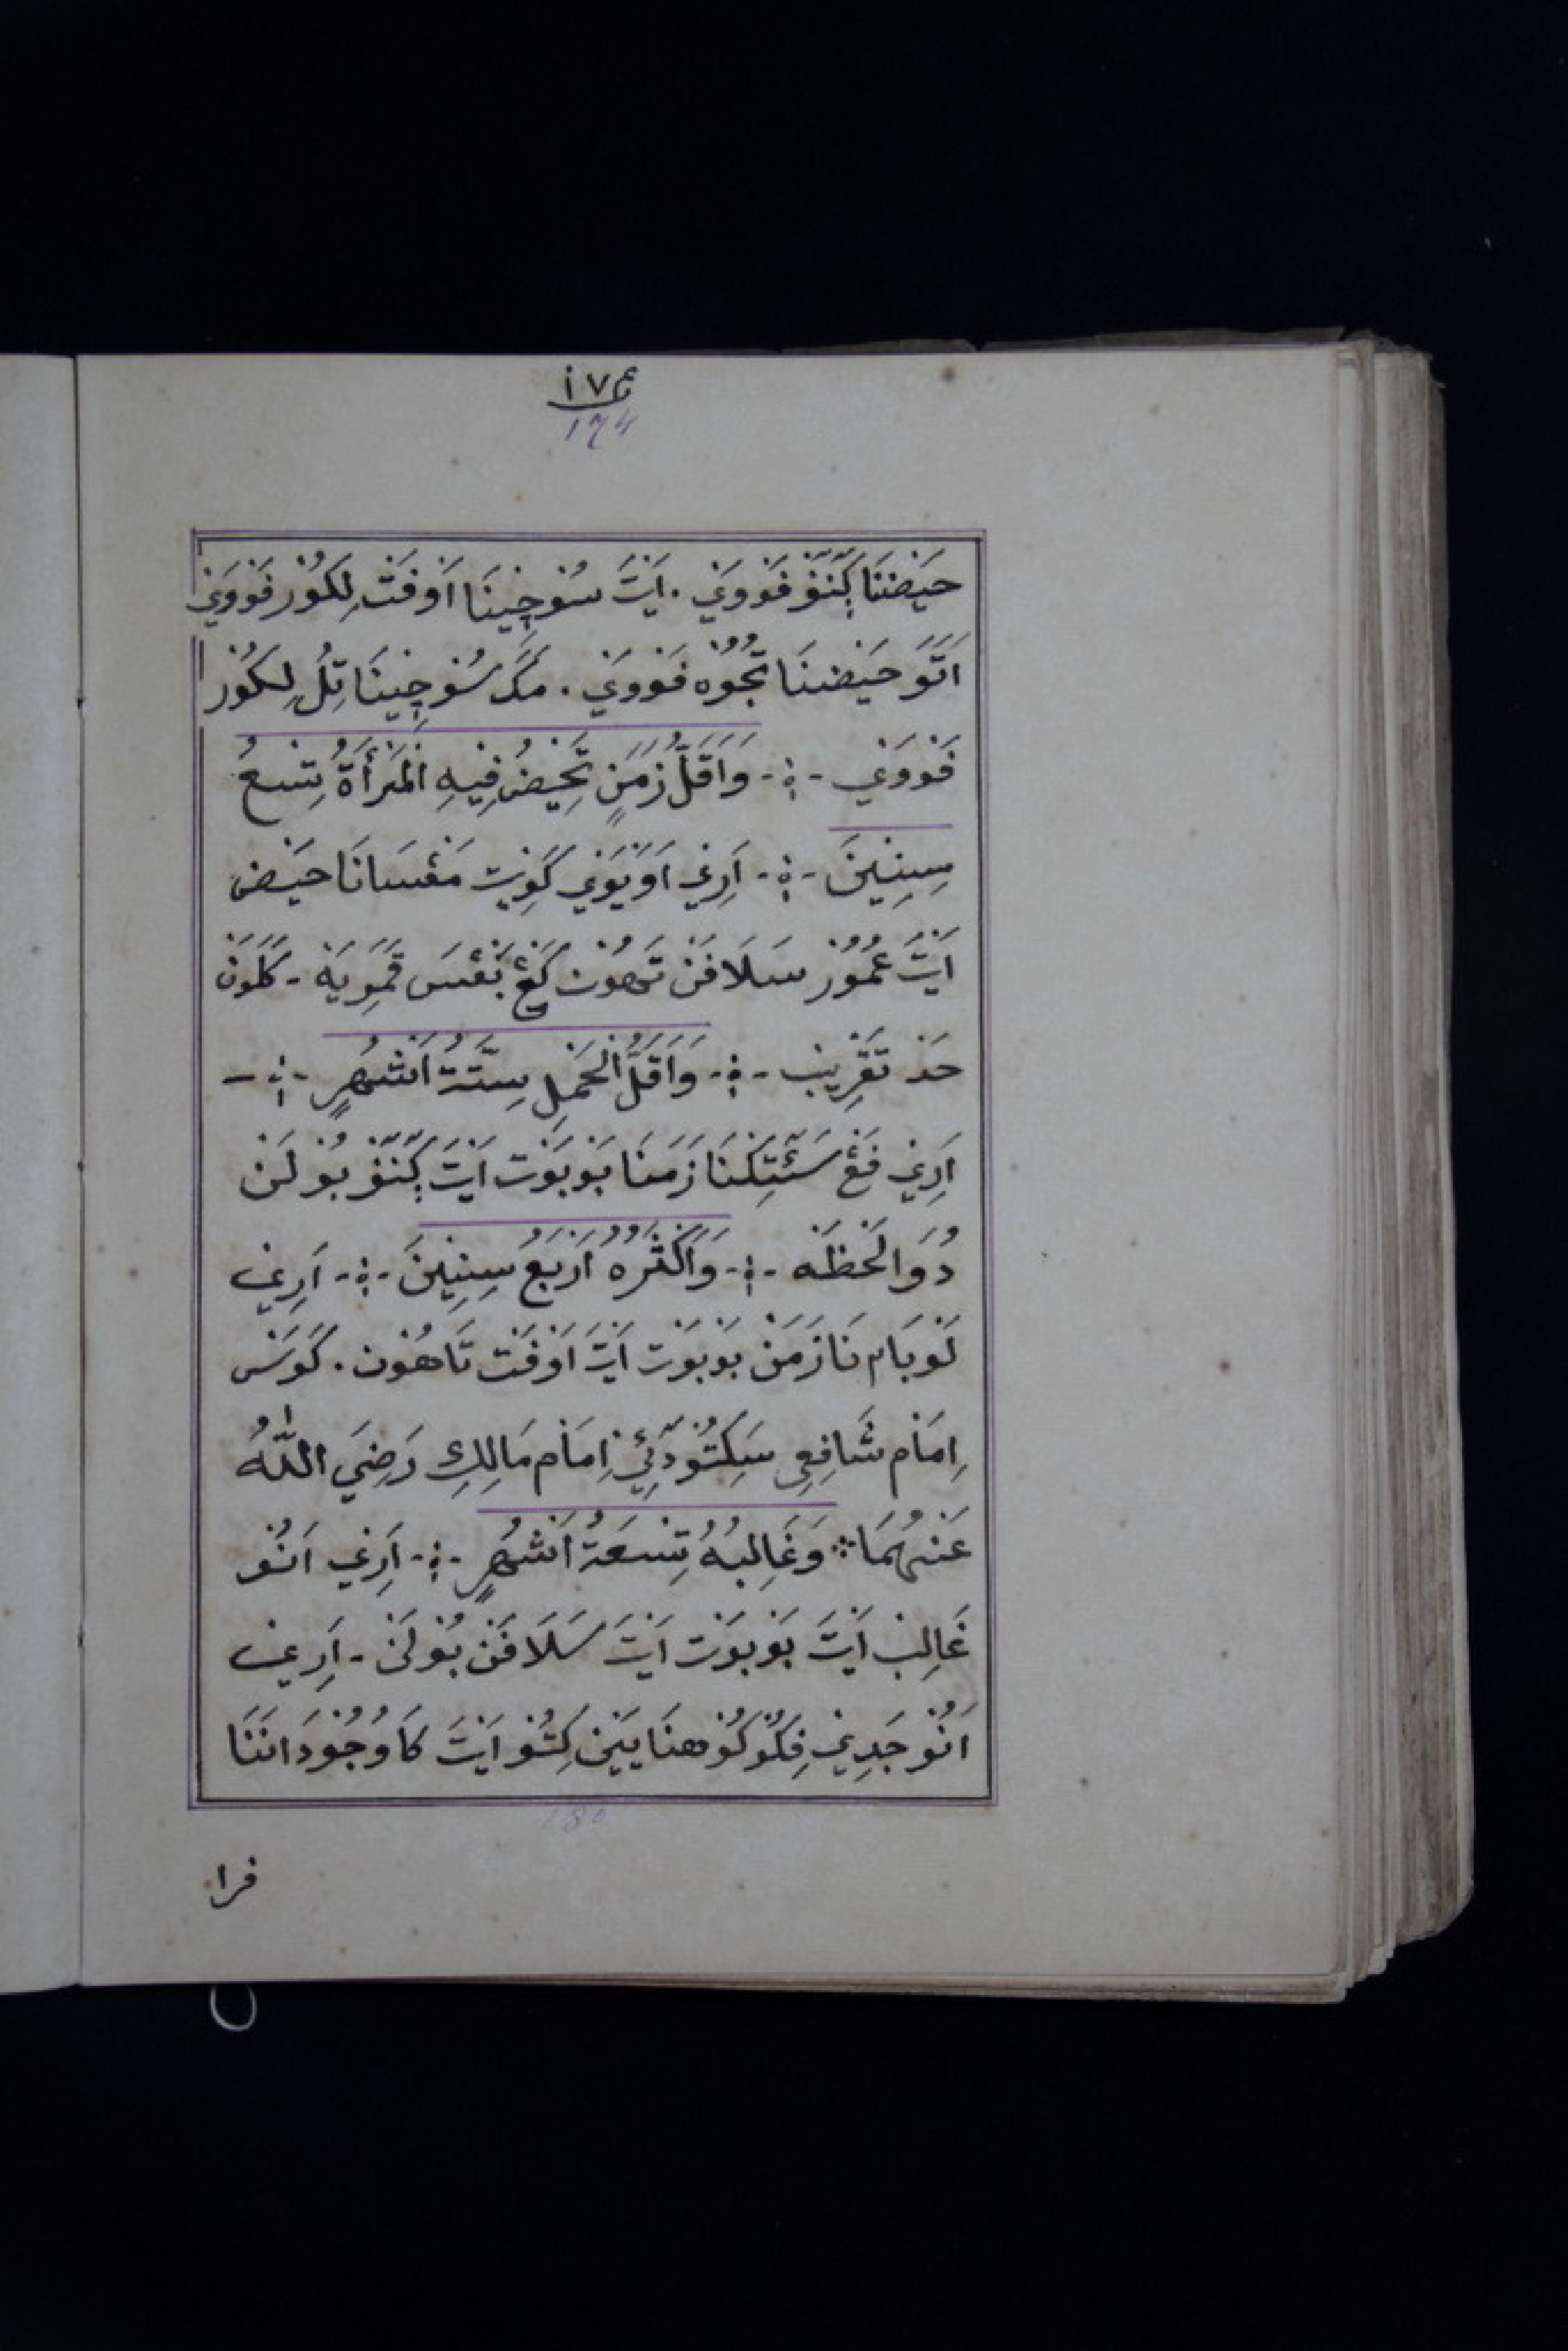 ١٧٤
174
حَيْضْنَا كَنَّفْ فَوْوَنِي . اَيْتَ سُوْچِيْنَا اَوْفَتْ لِكُوْرْ فَوْوَنِي
اَتَوَ حَيْضْنَا تُجُوْهْ فَوْوَنِي . مَكَ سُوْچِيْنَا تِلُ لِكُوْرْ
فَوْوَنِي - ؞ - وَاَقَلُّ زَمَنٍ تَحِيْضُ فِيْهِ الْمَرْأَةُ تِسْعُ
سِنِيْنَ - ؞ - اَرِيْ اَوْيَوْنِي كَوِيْتْ مَڠْسَانَا حَيْضْ
اَيْتَ عُمُوْرْ سَلَافَنْ تَهُوْنْ كَڠْ بَڠْسَ قَمَرِيَهْ - كَلَوَنْ
حَدْ تَقْرِيْبْ - ؞ - وَاَقَلُّ الْحَمْلِ سِتَّةُ اَشْهُرٍ - ؞ -
اَرِيْ فَڠْ سَئَتِكَنَا زَمَنَا بَوْبَوْتْ اَيْتَ كَنَّفْ بُوْلَنْ
دُوَا لَحْظَهْ - ؞ - وَاَكْثَرُهُ اَرْبَعُ سِنِيْنَ - ؞ - اَرِيْ
لَوْبَامْ نَا زَمَنْ بَوْبَوْتْ اَيْتَ اَوْفَتْ تَاهُوْنْ . كَوَسْ
اِمَامْ شَافِعِى سَكِتَوْدَئِيْ اِمَامْ مَالِكِ رَضِيَ اللّٰهُ
عَنْهُمَا ؞ وَغَالِبُهُ تِسْعَةُ اَشْهُرٍ - ؞ - اَرِيْ اَنُوْ
غَالِبْ اَيْتَ بَوْبَوْتْ اَيْتَ سَلَافَنْ بُوْلَنْ - اَرِيْ
اَنُوْ جَدِيْ فِكُوْكُوْهْنَا يَيْنْ كِتُوْ اَيْتَ كَاوُجُوْدَانَنَا
180
فرا